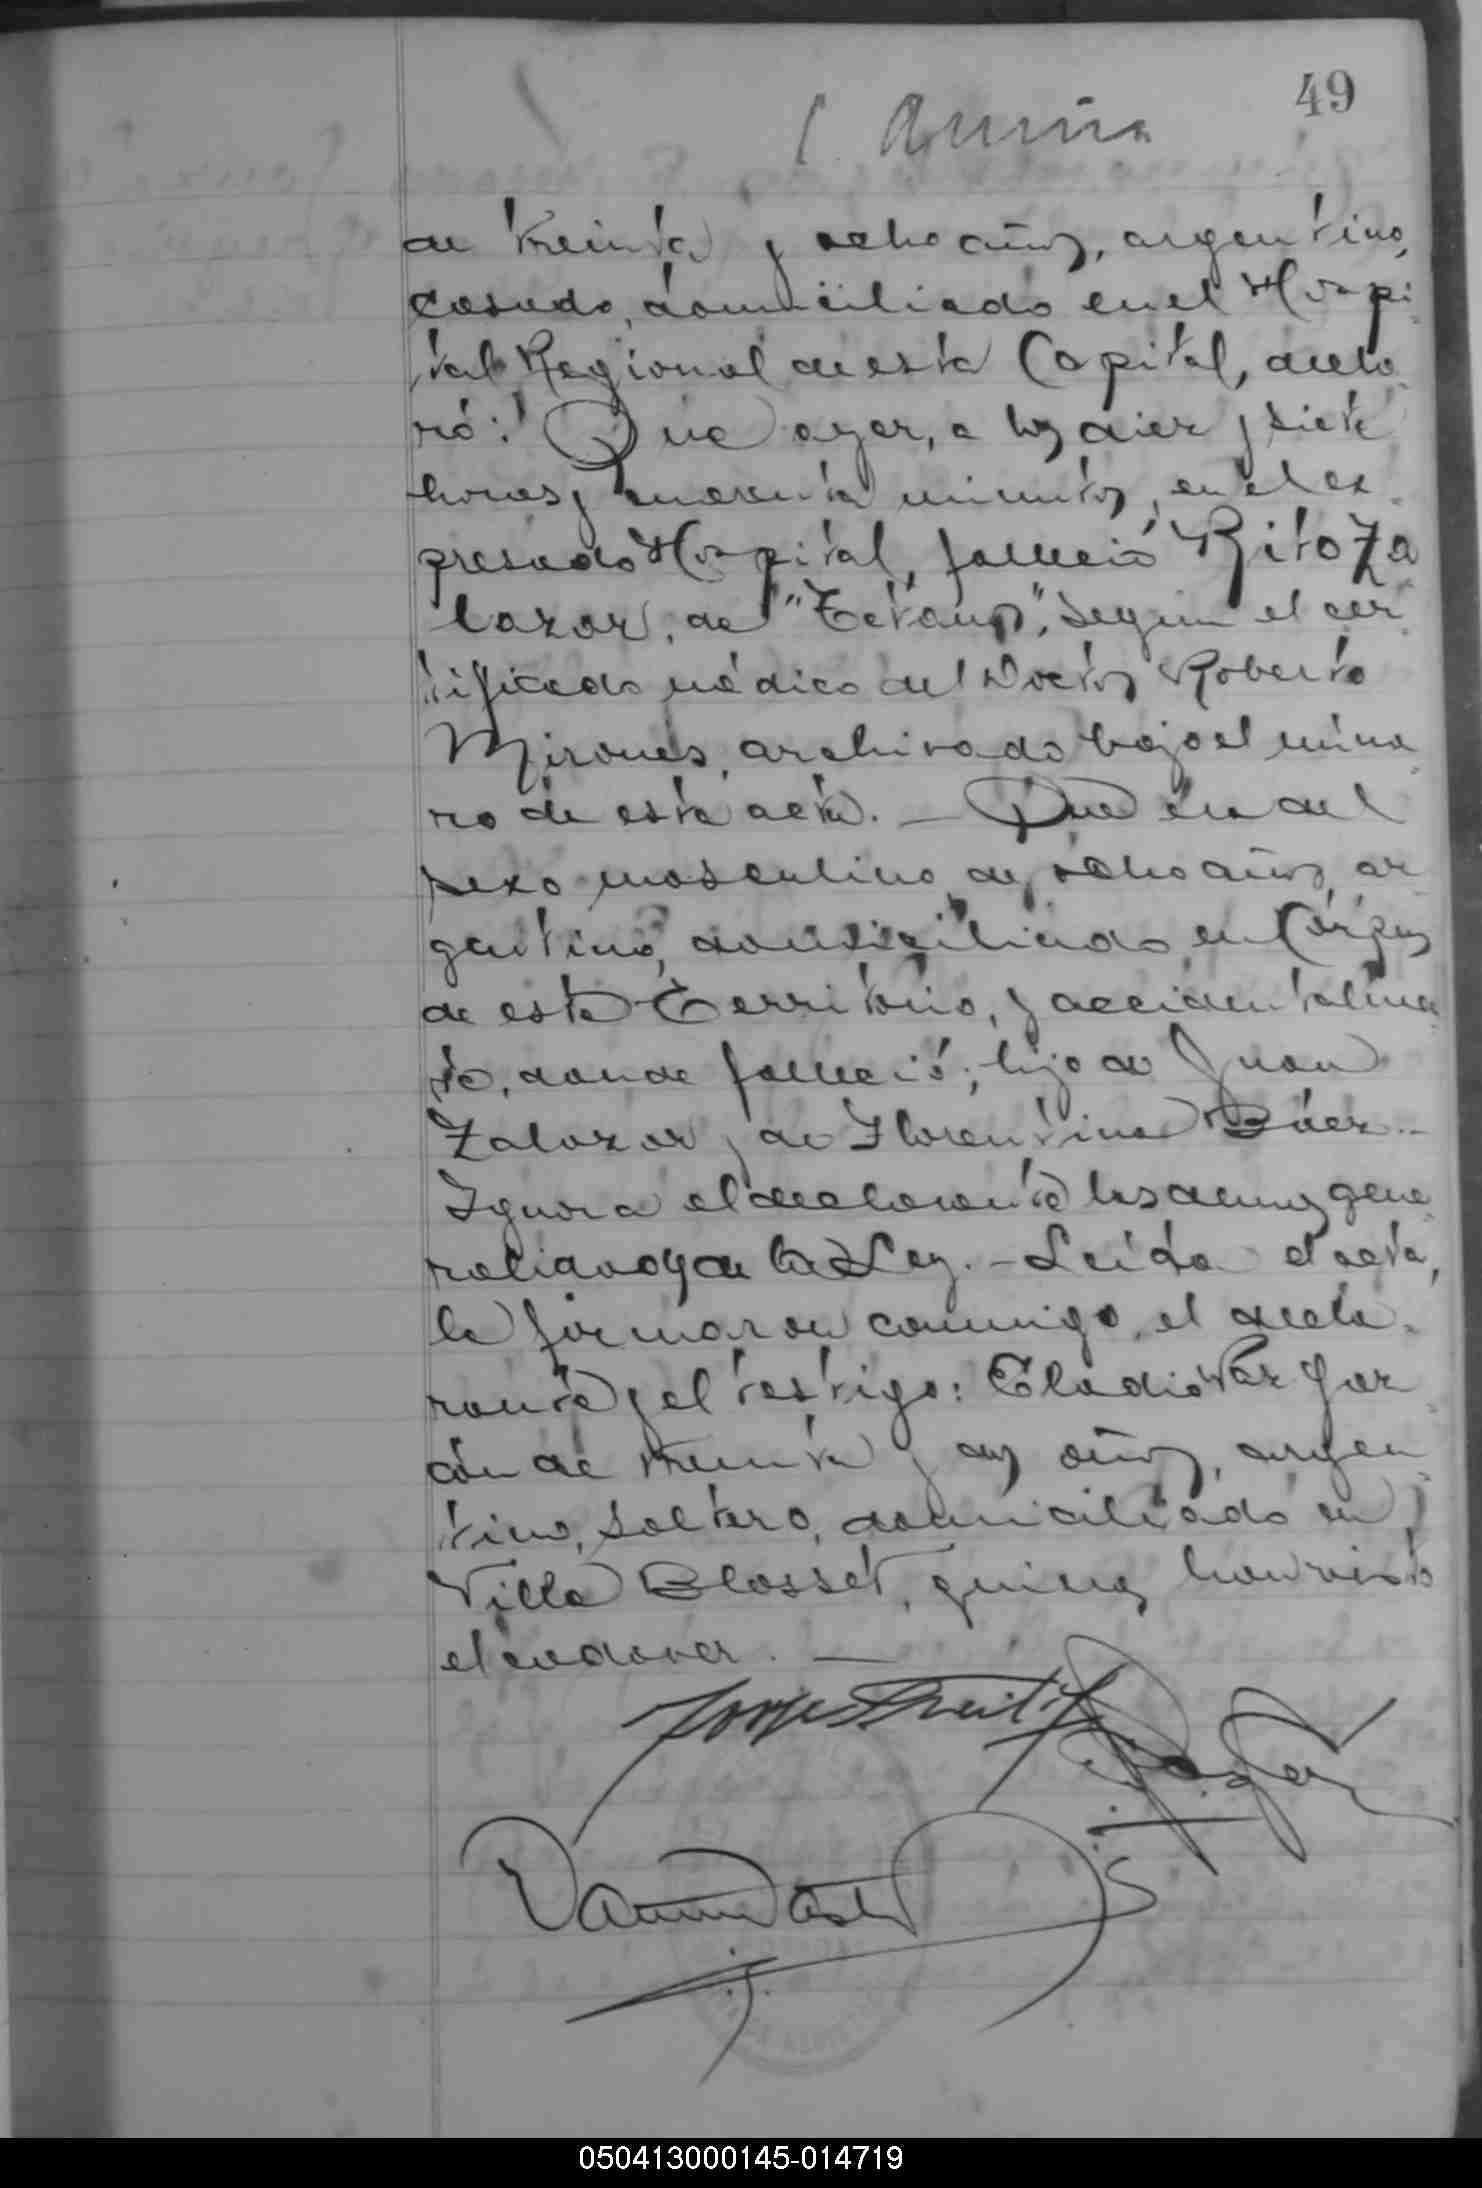 49
de treinta y ocho años, argentino,
casado, domiciliado en el Hospi-
tal Regional de esta Capital, decla-
ró: Que ayer, a las diez y siete
horas y cuarenta minutos, en el ex-
presado Hospital, falleció Rito Za-
lazar, de "Tétanos", según el cer-
tificado médico del Doctor Roberto
Mirones, archivado bajo el núme-
ro de esta acta. — Que era del
sexo masculino, de ocho años, ar-
gentino, domiciliado en Córpus
de este Territorio, y accidentalmen-
te, donde falleció; hijo de Juan
Zalazar y de Florentina Báez.-
Ignora el declarante las demas gene-
ralidades de la Ley. - Leída el acta,
la firmaron conmigo, el decla-
rante y el testigo: Eladio Paz Gar-
de treinta y dos años, argen-
tino, soltero, domiciliado en
Villa Blosset, quienes han visto
el cadaver. —
050413000145-014719